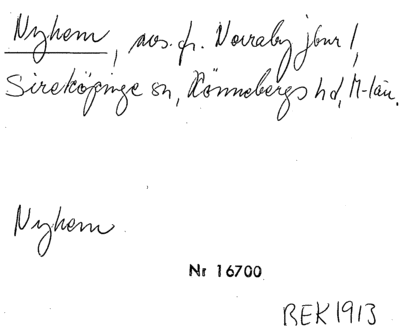 Nyhem, avs. fr. Norraby jbnr 1,
Sireköpinge sn, Rönnebergs hd, M-län.
Nyhem
Nr 16700
BEK 1913